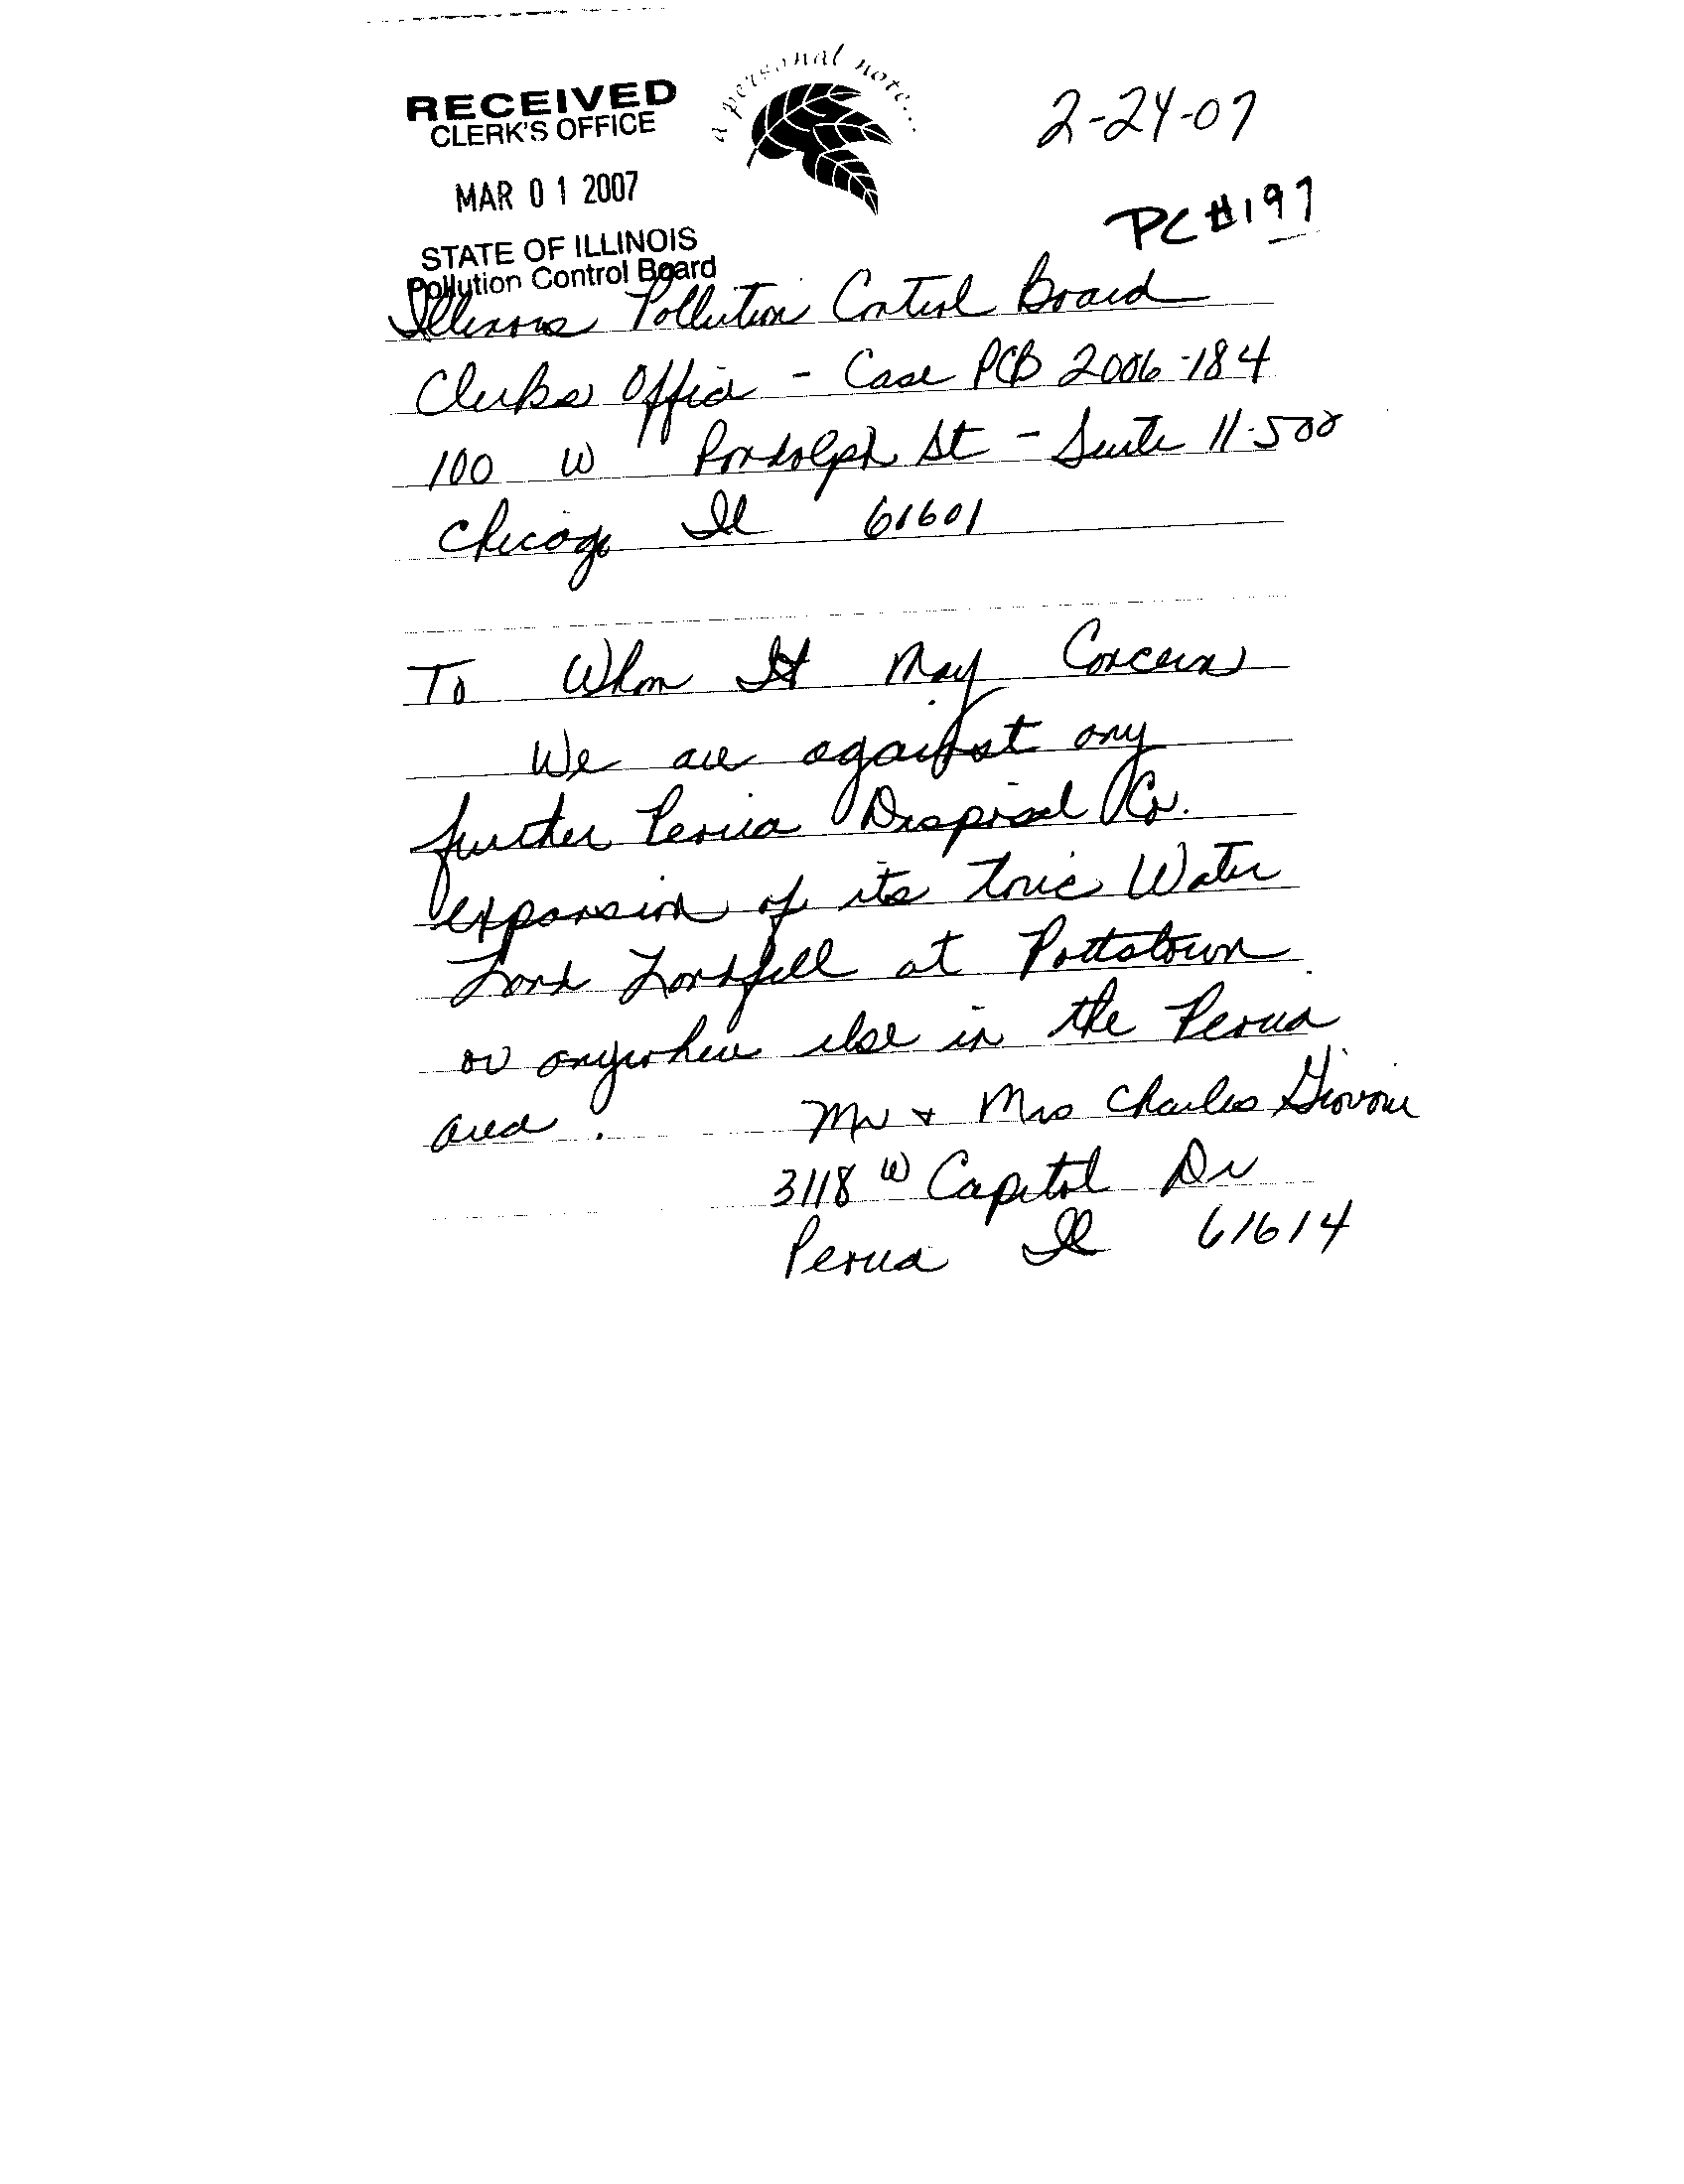 a personal note...
RECEIVED
CLERK'S OFFICE
MAR 01 2007
STATE OF ILLINOIS
Pollution Control Board
2-24-07
PC #197
Illinois Pollution Control Board
Clerks Office - Case PCB 2006-184
100 W Randolph St - Suite 11-500
Chicago Il 61601
To Whom It May Concern
We are against any
further Peoria Disposal Co.
expansion of its Toxic Water
Land Landfill at Pottstown
or anywhere else in the Peoria
area.
Mr + Mrs Charles
3118 W Capitol Dr
Peoria Il 61614